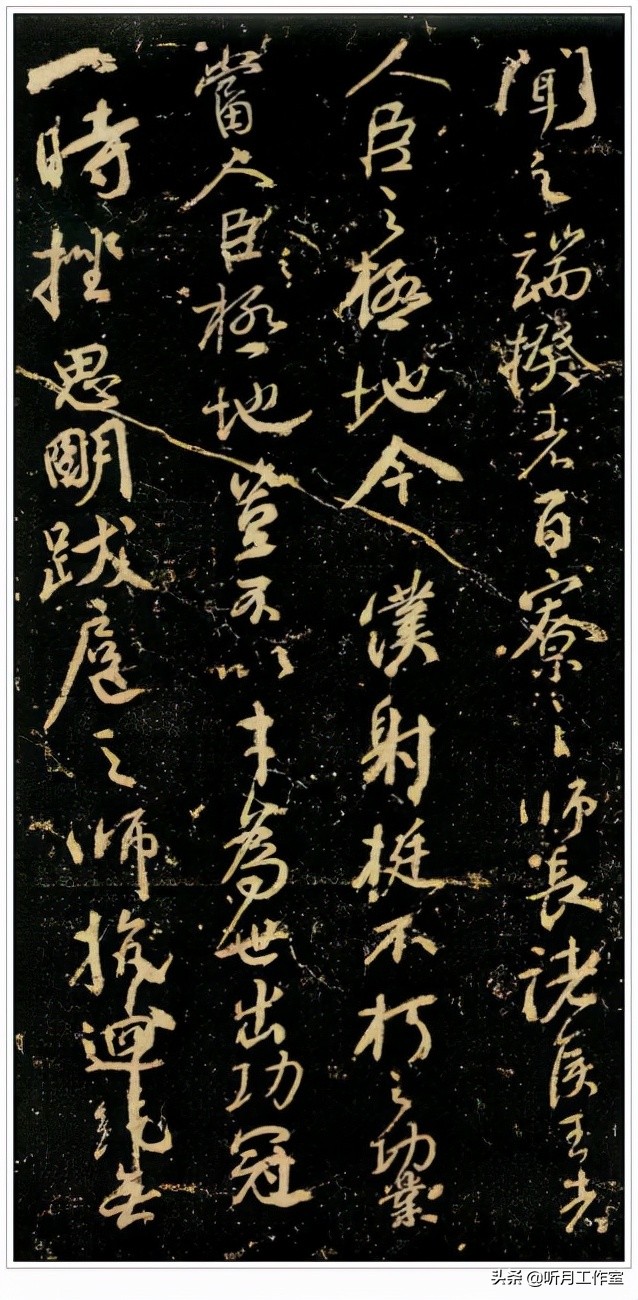 聞之端揆者百寮之師長諸侯王者
人臣之極地今僕射挺不朽之功業
當人臣之極地豈不以才為世出功冠
一時挫思明跋扈之師抗迴紇無
头条 @听月工作室